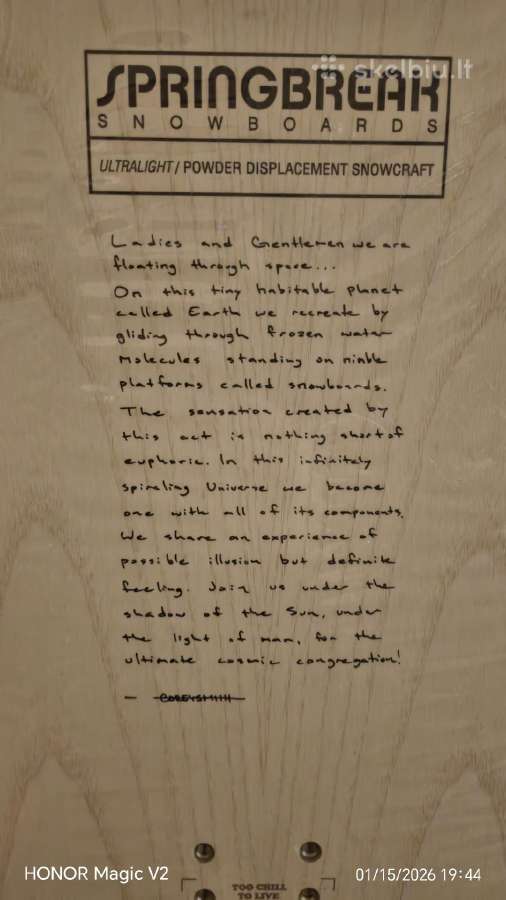 skelbiu.lt
SPRINGBREAK
SNOWBOARDS
ULTRALIGHT / POWDER DISPLACEMENT SNOWCRAFT
Ladies and Gentlemen we are
floating through space...
On this tiny habitable planet
called Earth we recreate by
gliding through frozen water
molecules standing on nimble
platforms called snowboards.
The sensation created by
this act is nothing short of
euphoric. In this infinitely
spiraling Universe we become
one with all of its components.
We share an experience of
possible illusion but definite
feeling. Join us under the
shadow of the Sun, under
the light of man, for the
ultimate cosmic congregation!
— COREYSMIIIH
TOO CHILL
TO LIVE
HONOR Magic V2
01/15/2026 19:44